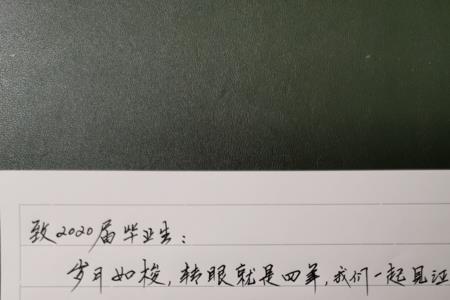 致2020届毕业生：
岁月如梭，转眼就是四年，我们一起见证